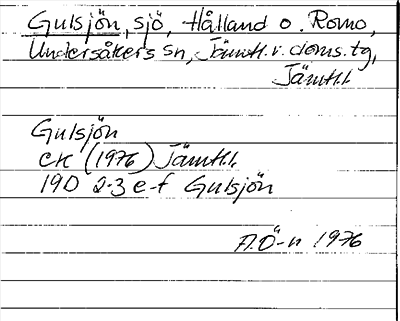 Gulsjön, sjö, Hålland o. Romo,
Undersåkers sn, Jämtl. v. doms. tg,
Jämtl. l.
Gulsjön
ek (1976) Jämtl. l.
19D 2-3 e-f Gulsjön
A.Ö-n 1976